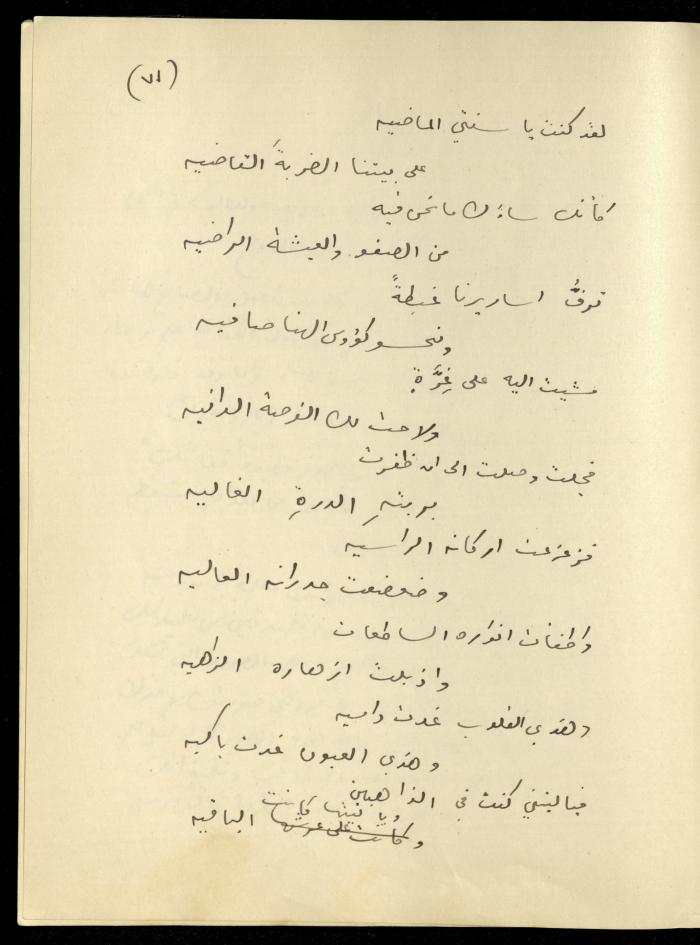 (٧١)
لقد كنت يا سنتي الماضيه
على بيتنا الضربةَ القاضيه
كأنك ساءك ما نحن فيه
من الصفو والعيشة الراضيه
ترفُّ اساريرنا غبطةً
ونحسو كؤوس الهنا صافيه
مشيت اليه على غِرَّةٍ
ولاحت لك الفرصة الدانيه
فجلت وصلت الى ان ظفرت
بربتهِ الدرةِ الغاليه
فزعزعت اركانه الراسيه
وضعضعت جدرانه العاليه
واطفأت انواره الساطعات
واذبلت ازهاره الزاهيه
وهذي القلوب غدت داميه
وهذي العيون غدت باكيه
فيا ليتني كنت في الذاهبين
ويا ليتها كانت الباقيه